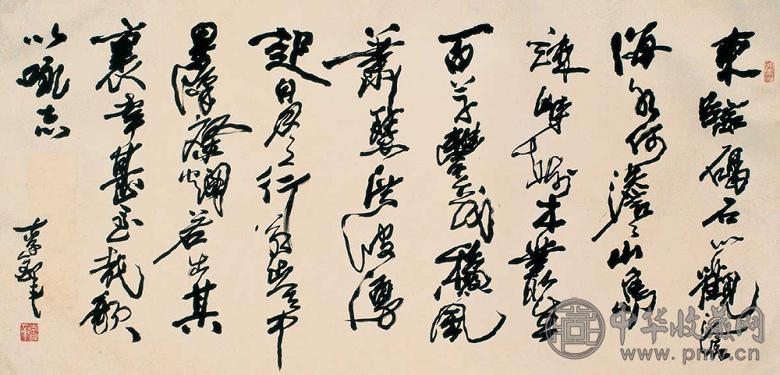 東臨碣石以觀滄
海水何澹々山島
竦峙樹木叢生
百草豐茂秋風
蕭瑟洪波湧
起日月之行若出其中
星漢燦爛若出其
裏幸甚至哉歌
以詠志
李鐸
中华收藏网
www.pmw.cn